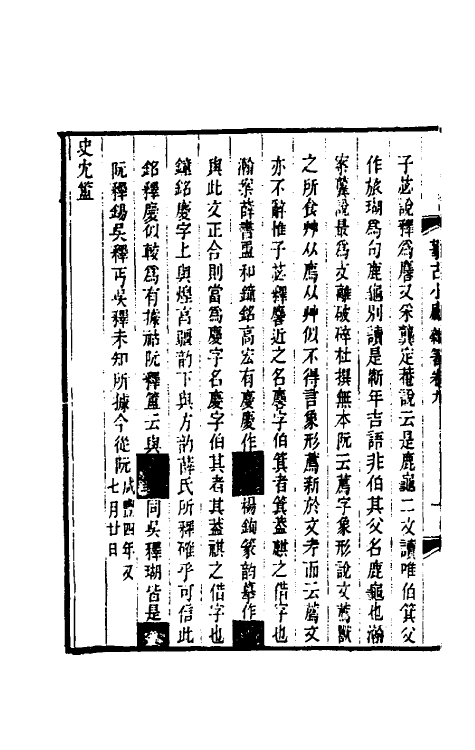 子苾說釋爲麐又采龔定菴說云是鹿龜二文讀唯伯箕父
作旅瑚爲句鹿龜別讀是斬年吉語非伯其父名鹿龜也瀚
案龔說最爲文離破碎杜撰無本阮云薦字象形說文薦獸
之所食艸从廌从艸似不得言象形薦新於文考而云薦文
亦不辭惟子苾釋麐近之名麐字伯箕者箕蓋麒之借字也
瀚案薛書盄和鐘銘高宏有慶慶作 楊鉤篆韵摹作
與此文正合則當爲慶字名慶字伯其者其蓋祺之借字也
鐘銘慶字上與煌高疆韵下與方韵薛氏所釋確乎可信此
銘釋慶似較爲有據祜阮釋簠云與 同吳釋瑚皆是
阮釋錫吳釋丐吳釋未知所據今從阮 咸豐四年又
七月廿日
史宂簠
攀古小廬雜著卷九